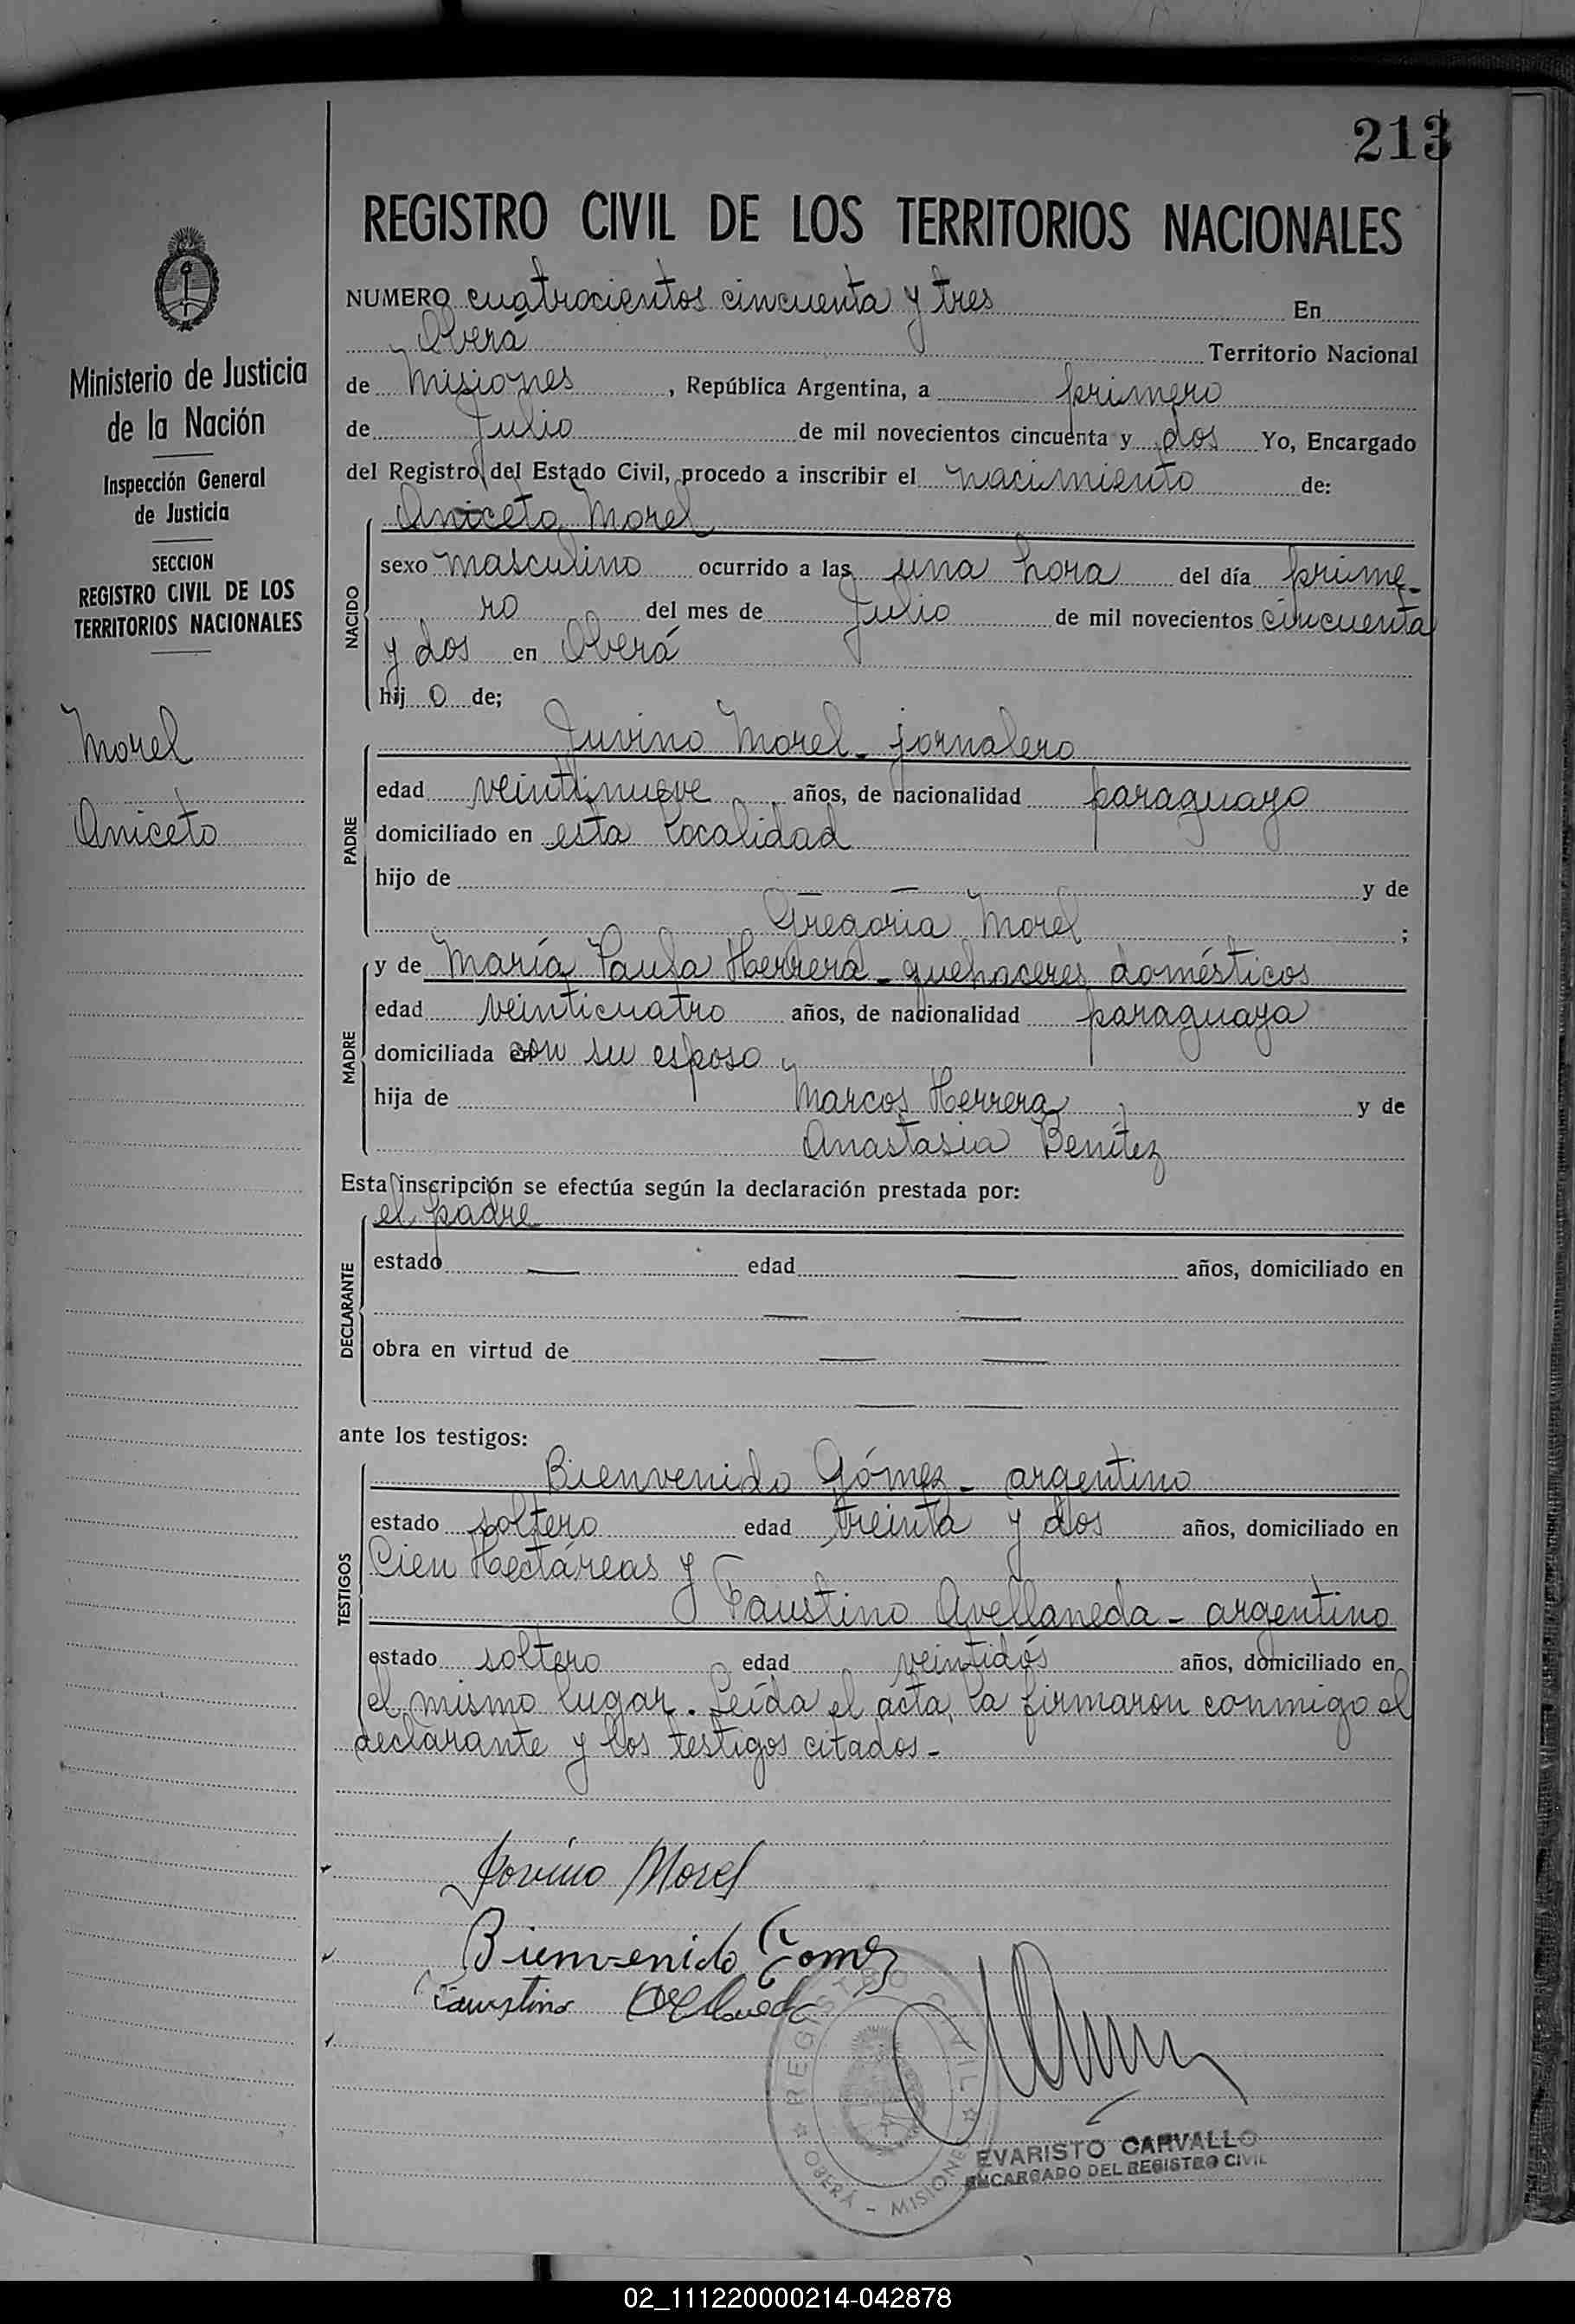 213
REGISTRO CIVIL DE LOS TERRITORIOS NACIONALES
Ministerio de Justicia
de la Nación
Inspección General
de Justicia
SECCION
REGISTRO CIVIL DE LOS
TERRITORIOS NACIONALES
Morel
Aniceto
NUMERO cuatrocientos cincuenta y tres En
Oberá Territorio Nacional
de Misiones, República Argentina, a primero
de Julio de mil novecientos cincuenta y dos Yo, Encargado
del Registro del Estado Civil, procedo a inscribir el nacimiento de:
NACIDO
Aniceto Morel
sexo masculino ocurrido a las una hora del día prime-
ro del mes de Julio de mil novecientos cincuenta
y dos en Oberá
hij o de;
PADRE
Juvino Morel - jornalero
edad veintinueve años, de nacionalidad paraguayo
domiciliado en esta localidad
hijo de — — y de
Gregoria Morel ;
MADRE
y de María Paula Herrera - quehaceres domésticos
edad veinticuatro años, de nacionalidad paraguaya
domiciliada con su esposo
hija de Marcos Herrera y de
Anastasia Benítez
Esta inscripción se efectúa según la declaración prestada por:
DECLARANTE
el padre
estado — edad — años, domiciliado en
— —
obra en virtud de — —
— —
ante los testigos:
TESTIGOS
Bienvenido Gómez - argentino
estado soltero edad treinta y dos años, domiciliado en
Cien Hectáreas y
Faustino Avellaneda - argentino
estado soltero edad veintidós años, domiciliado en
el mismo lugar. Leída el acta, la firmaron conmigo el
declarante y los testigos citados -
Jovino Morel
Bienvenido Gomez
Faustino
REGISTRO CIVIL
OBERÁ - MISIONES
EVARISTO CARVALLO
ENCARGADO DEL REGISTRO CIVIL
02_111220000214-042878